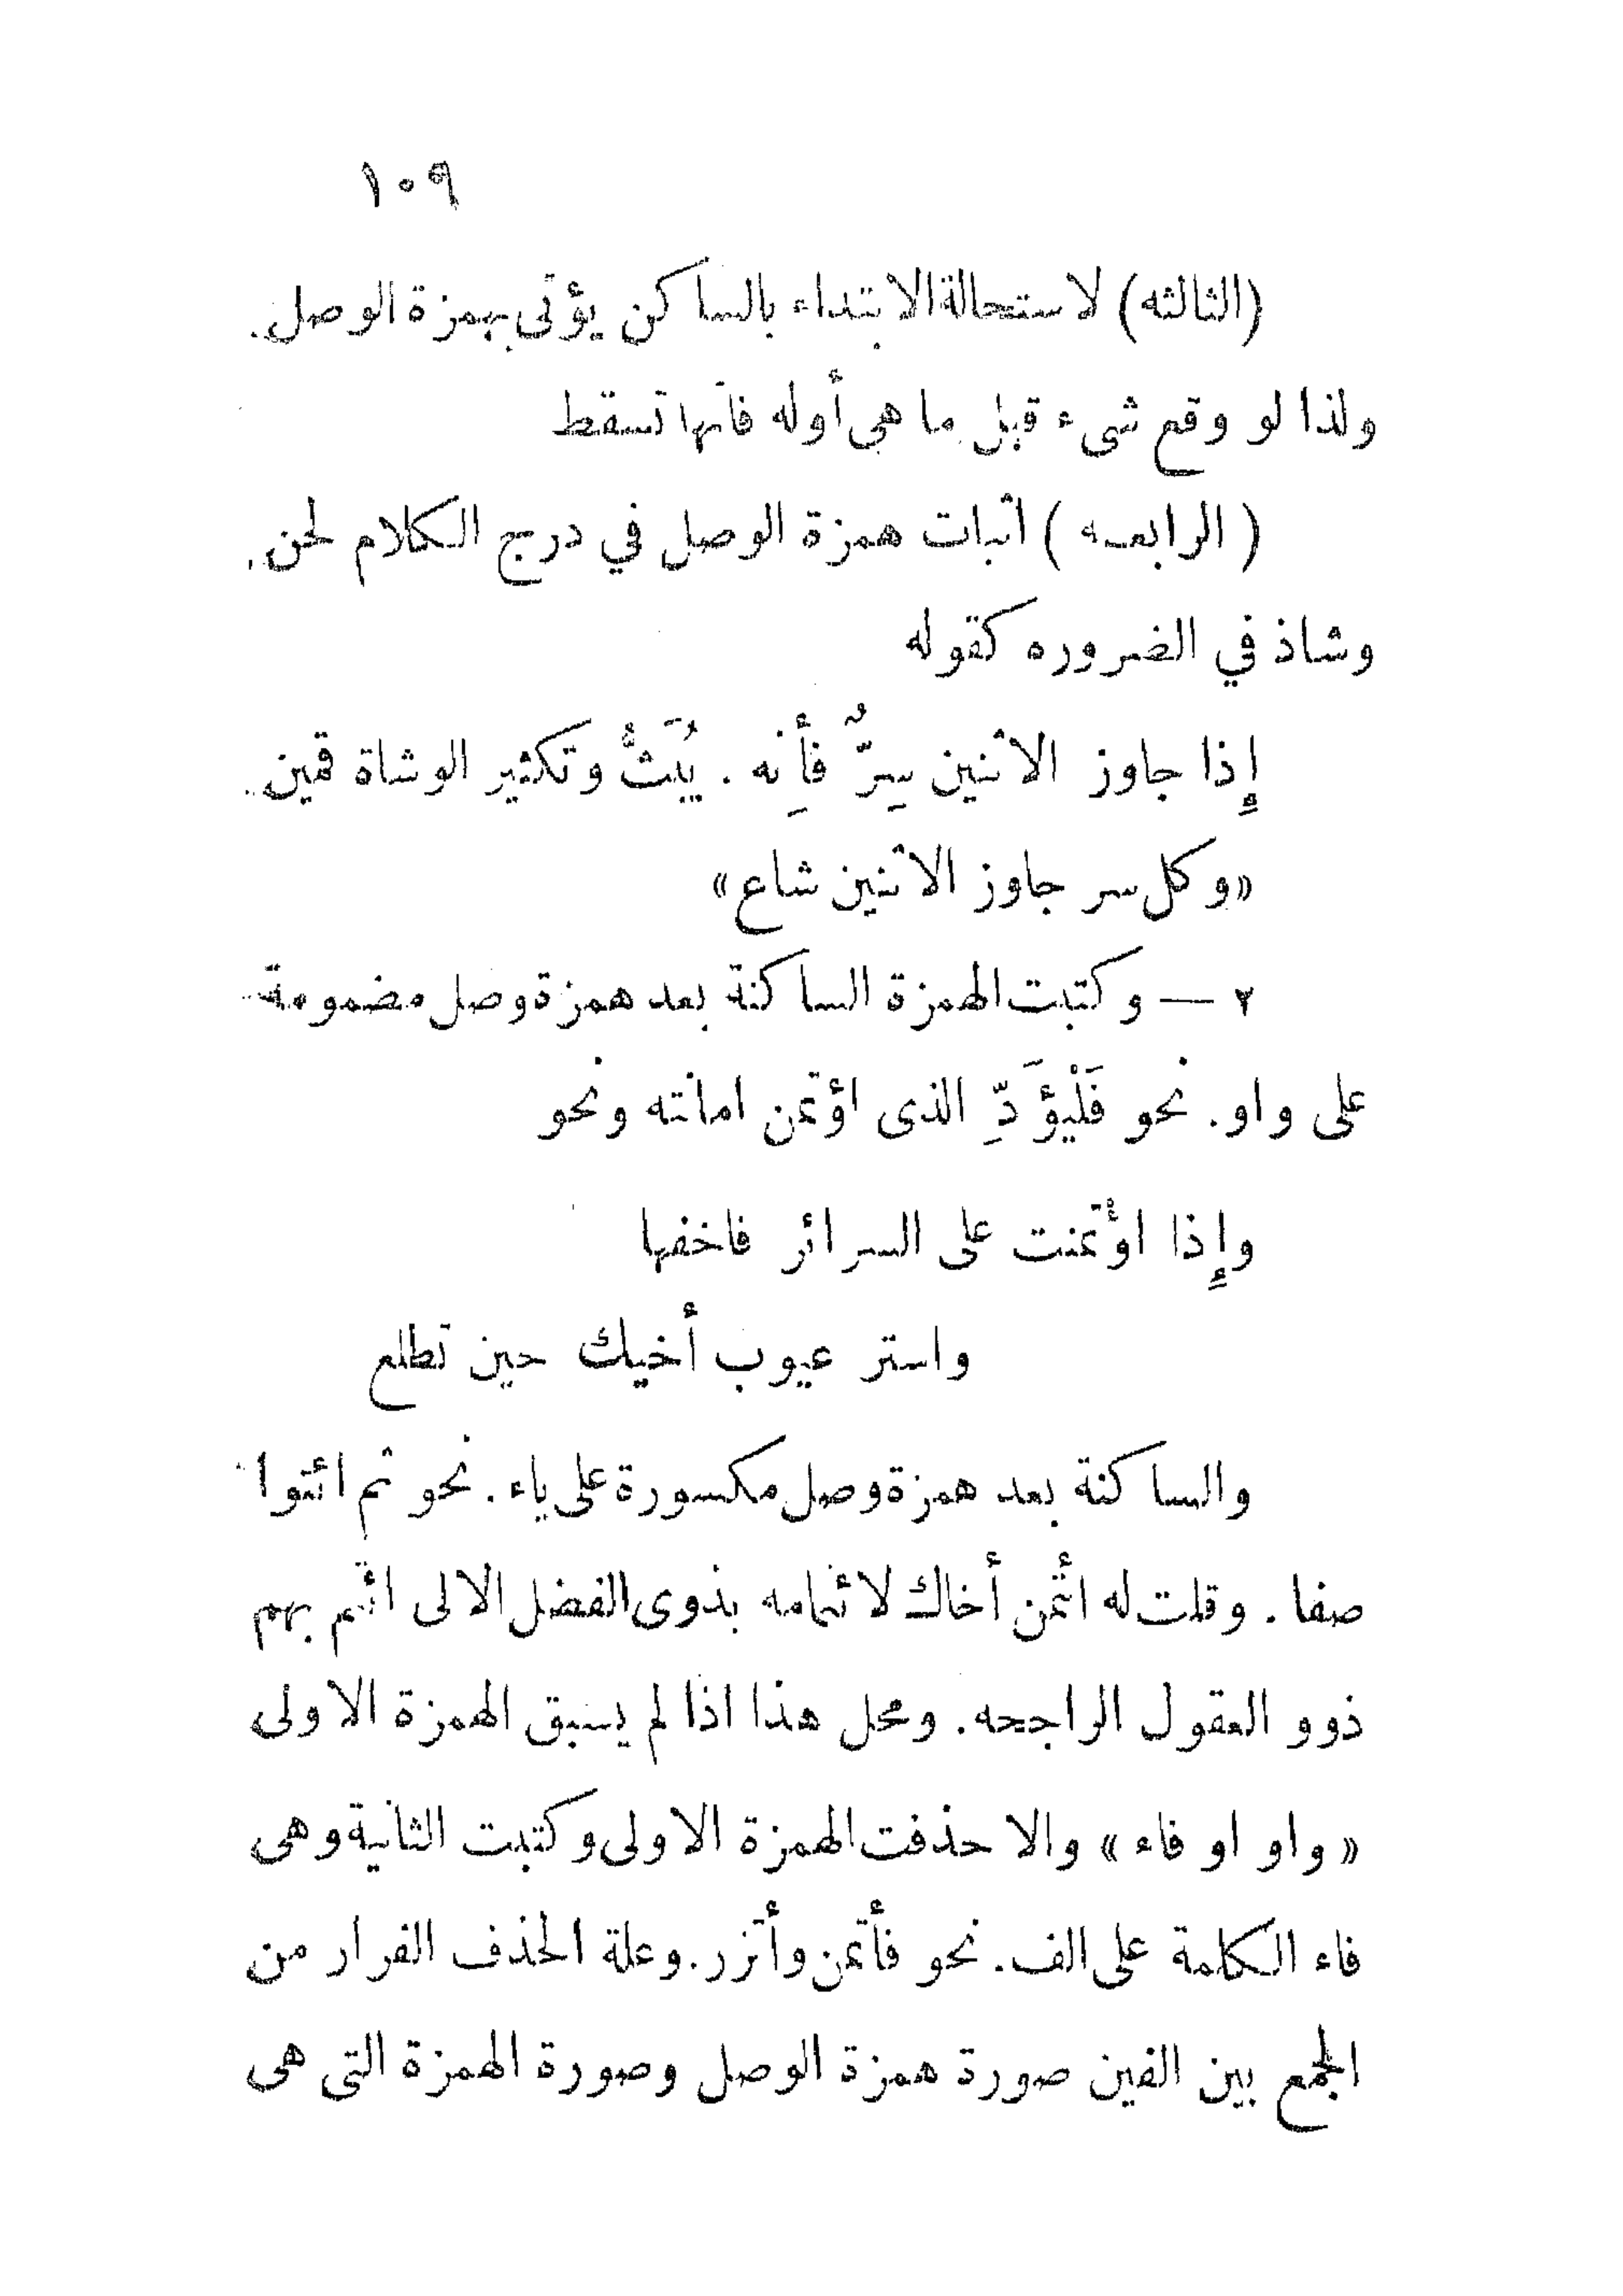 ١٠٩
(الثالثه) لاستحالة الابتداء بالساكن يؤتى بهمزة الوصل.
ولذا لو وقع شىء قبل ما هى أوله فانها تسقط
( الرابعه ) اثبات همزة الوصل في درج الكلام لحن.
وشاذ في الضروره كقوله
إِذا جاوز الاثنين سِرٌّ فأِنه . يُبَثُّ وتكثير الوشاة قمين.
«وكل سر جاوز الاثنين شاع»
٢ — وكتبت الهمزة الساكنة بعد همزة وصل مضمومة
على واو. نحو فَلْيُؤَدِّ الذى اؤتمن امانته ونحو
وإِذا اؤْتمنت على السرائر فاخفها
واستر عيوب أخيك حين تطلع
والساكنة بعد همزة وصل مكسورة على ياء. نحو ثم ائتوا
صفا. وقلت له ائتمن أخاك لائتمامه بذوى الفضل الالى ائتم بهم
ذوو العقول الراجحه. ومحل هذا اذا لم يسبق الهمزة الاولى
« واو او فاء » والا حذفت الهمزة الاولى وكتبت الثانية وهى
فاء الكلمة على الف. نحو فأتمن وأتزر. وعلة الحذف الفرار من
الجمع بين الفين صورة همزة الوصل وصورة الهمزة التى هى